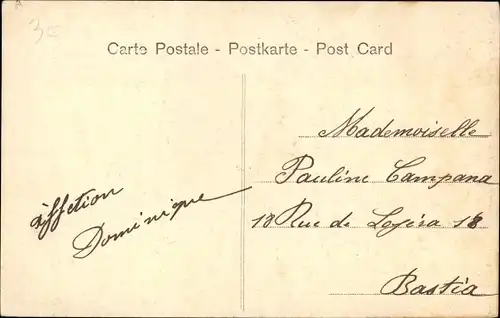 3€
Carte Postale - Postkarte - Post Card
affetion
Dominique
Mademoiselle
Pauline Campana
18 Rue de 18
Bastia